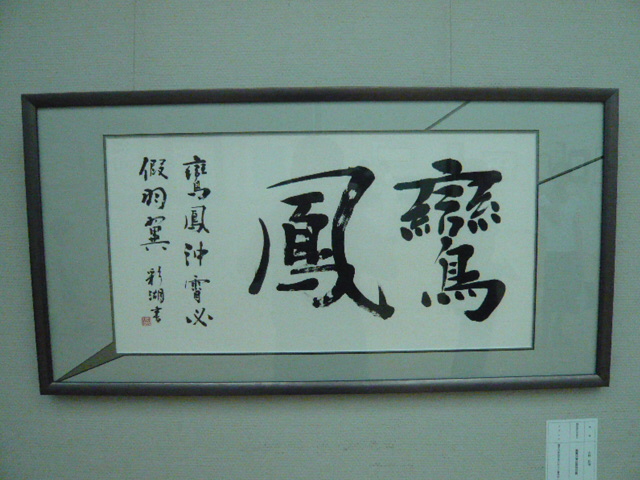 鸞鳳
鸞鳳沖霄必
假羽翼 彩湖書